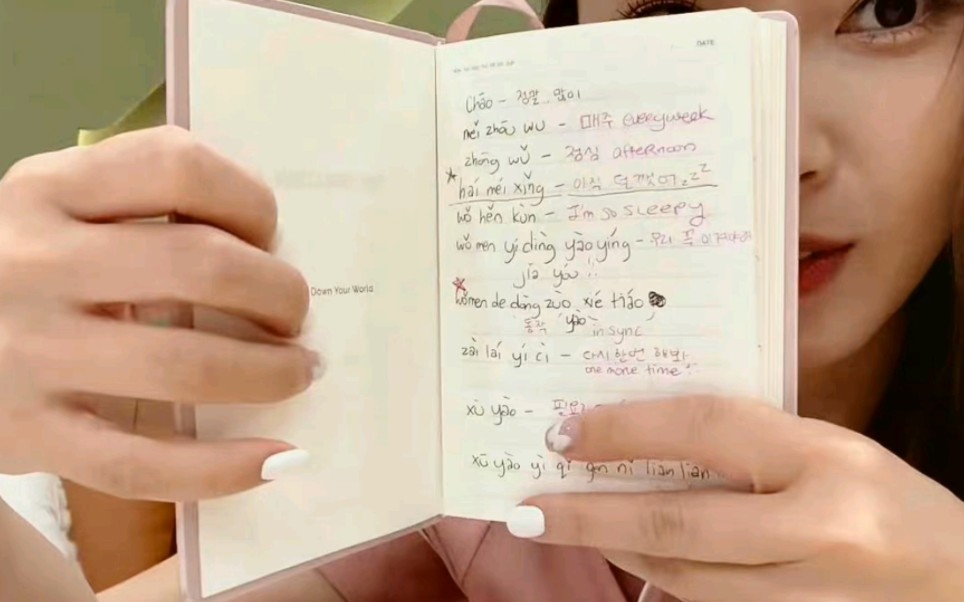 Down Your World
DATE
Chāo – 정말 많이
měi zhōu wu – 매주 everyweek
zhōng wǔ – 점심 afternoon
☆ hái méi xǐng – 아직 덜 깼어 zzz
wǒ hěn kùn – I'm so sleepy
wǒ men yí dìng yào yíng – 우리 꼭
jiā yóu !!
☆ wǒmen de dòng zuò xié tiáo
동작 yào in sync
zài laí yí cì – 다시 한번 해봐
one more time
xū yào –
xū yào yì qǐ gēn nǐ liàn liàn